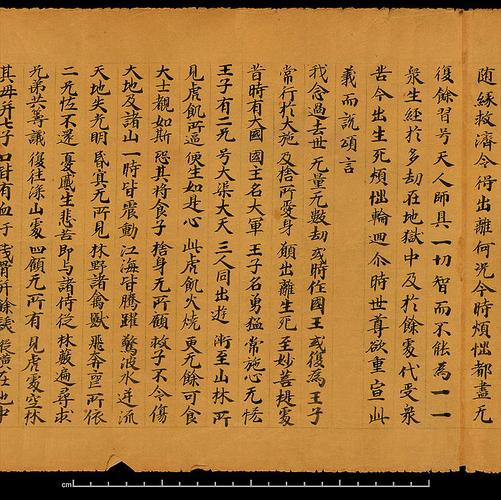 随緣救濟令得出離何況今時煩惱都盡无
復餘習号天人師具一切智而不能為一一
衆生經於多劫在地獄中及於餘處代受衆
苦令出生死煩惱輪迴尒時世尊欲重宣此
義而說頌言
我念過去世 无量无數劫 或時作國王 或復為王子
常行於大施 及捨所愛身 願出離生死 至妙菩提處
昔時有大國 國主名大軍 王子名勇猛 常施心无悋
王子有二兄 号大渠大天 三人同出遊 漸至山林所
見虎飢所逼 便生如是心 此虎飢火燒 更无餘可食
大士觀如斯 恐其將食子 捨身无所顧 救子不令傷
大地及諸山 一時皆震動 江海皆騰躍 驚波水逆流
天地失光明 昏冥无所見 林野諸禽獸 飛奔喪所依
二兄怪不還 憂慼生悲苦 即與諸侍從 林藪遍尋求
兄弟共籌議 復往深山處 四顧无所有 見虎處空林
其母并七子 口皆有血污 殘骨并餘髮 縱橫在地中